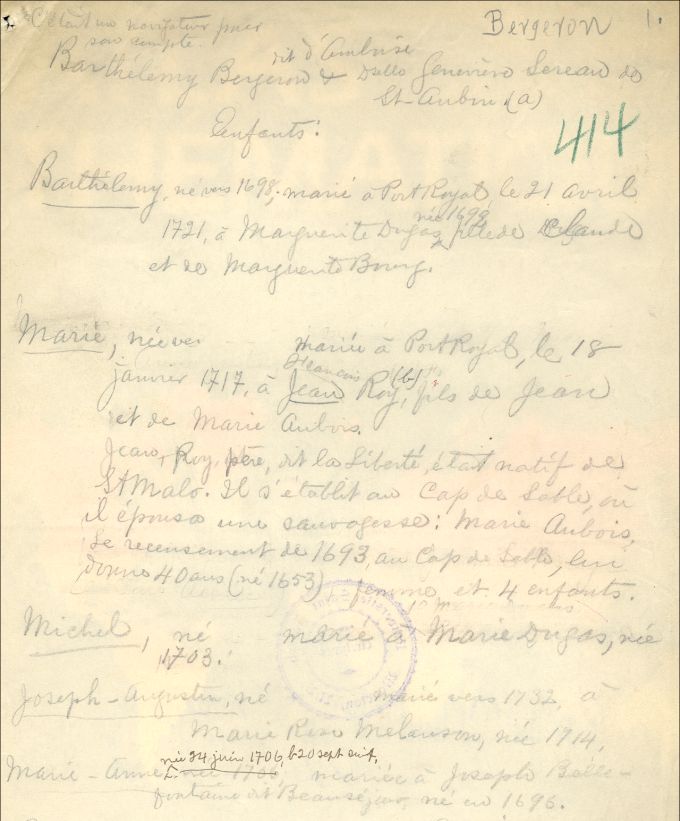 C'était un navigateur pour
son compte.
Bergeron 1.
dit d'Ambroise
Barthélemy Bergeron & Dselle Geneviève Sereau de
St-Aubin (a)
Enfants:
414
Barthélemy, né vers 1698; marié à Port Royal, le 21 avril
née 1699
1721, à Marguerite Dugas, fille de Claude
et de Marguerite Bourg.
Marie, née ver mariée à Port Royal, le 18
François (b)
janvier 1717, à Jean Roy, fils de Jean
et de Marie Aubois.
Jean, Roy, père, dit la Liberté, était natif de
St Malo. Il s'établit au Cap de Sable, où
il épousa une sauvagesse: Marie Aubois.
Le recensement de 1693, au Cap de Sable, lui
donne 40 ans (né 1653), femme et 4 enfants.
Michel, né marié à Marie Dugas, née
1703.
Joseph-Augustin, né marié vers 1732, à
Marie Rose Melanson, née 1914,
née 24 juin 1706, b 20 sept suit,
Marie-Anne née 1706, mariée à Joseph Belle-
fontaine dit Beauséjour, né en 1696.